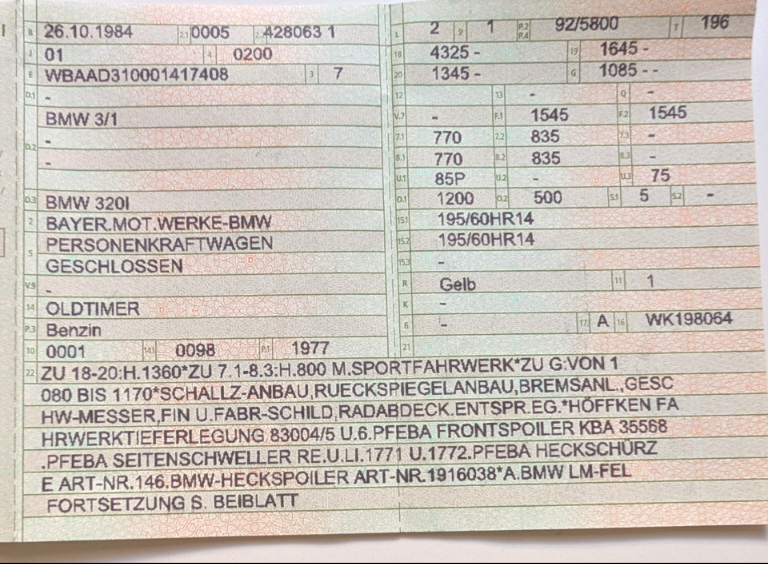 B 26.10.1984 2.1 0005 2.2 428063 1
J 01 4 0200
E WBAAD310001417408 3 7
D.1 -
BMW 3/1
D.2 -
-
D.3 BMW 320I
2 BAYER.MOT.WERKE-BMW
5 PERSONENKRAFTWAGEN
GESCHLOSSEN
V.9 -
14 OLDTIMER
P.3 Benzin
10 0001 14.1 0098 P.1 1977
L 2 9 1 P.2 P.4 92/5800 T 196
18 4325 - 19 1645 -
20 1345 - G 1085 - -
12 13 - Q -
V.7 - F.1 1545 F.2 1545
7.1 770 7.2 835 7.3 -
8.1 770 8.2 835 8.3 -
U.1 85P U.2 - U.3 75
O.1 1200 O.2 500 S.1 5 S.2 -
15.1 195/60HR14
15.2 195/60HR14
15.3 -
R Gelb 11 1
K -
6 - 17 A 16 WK198064
21
22 ZU 18-20:H.1360*ZU 7.1-8.3:H.800 M.SPORTFAHRWERK*ZU G:VON 1
080 BIS 1170*SCHALLZ-ANBAU,RUECKSPIEGELANBAU,BREMSANL.,GESC
HW-MESSER,FIN U.FABR-SCHILD,RADABDECK.ENTSPR.EG.*HÖFFKEN FA
HRWERKTIEFERLEGUNG 83004/5 U.6.PFEBA FRONTSPOILER KBA 35568
.PFEBA SEITENSCHWELLER RE.U.LI.1771 U.1772.PFEBA HECKSCHÜRZ
E ART-NR.146.BMW-HECKSPOILER ART-NR.1916038*A.BMW LM-FEL
FORTSETZUNG S. BEIBLATT